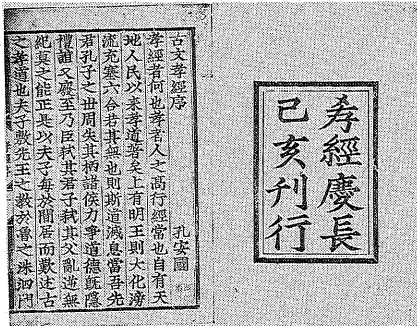 孝經慶長
己亥刊行
古文孝經序
孔安國
孝經者何也孝者人之高行經常也自有天
地人民以來孝道著矣上有明王則大化滂
流充塞六合若其無也則斯道滅息當吾先
君孔子之世周失其柄諸侯力爭道德既隱
禮誼又廢至乃臣弑其君子弑其父亂逆無
紀莫之能正是以夫子每於閒居而歎述古
之孝道也夫子敷先王之教於魯之洙泗門